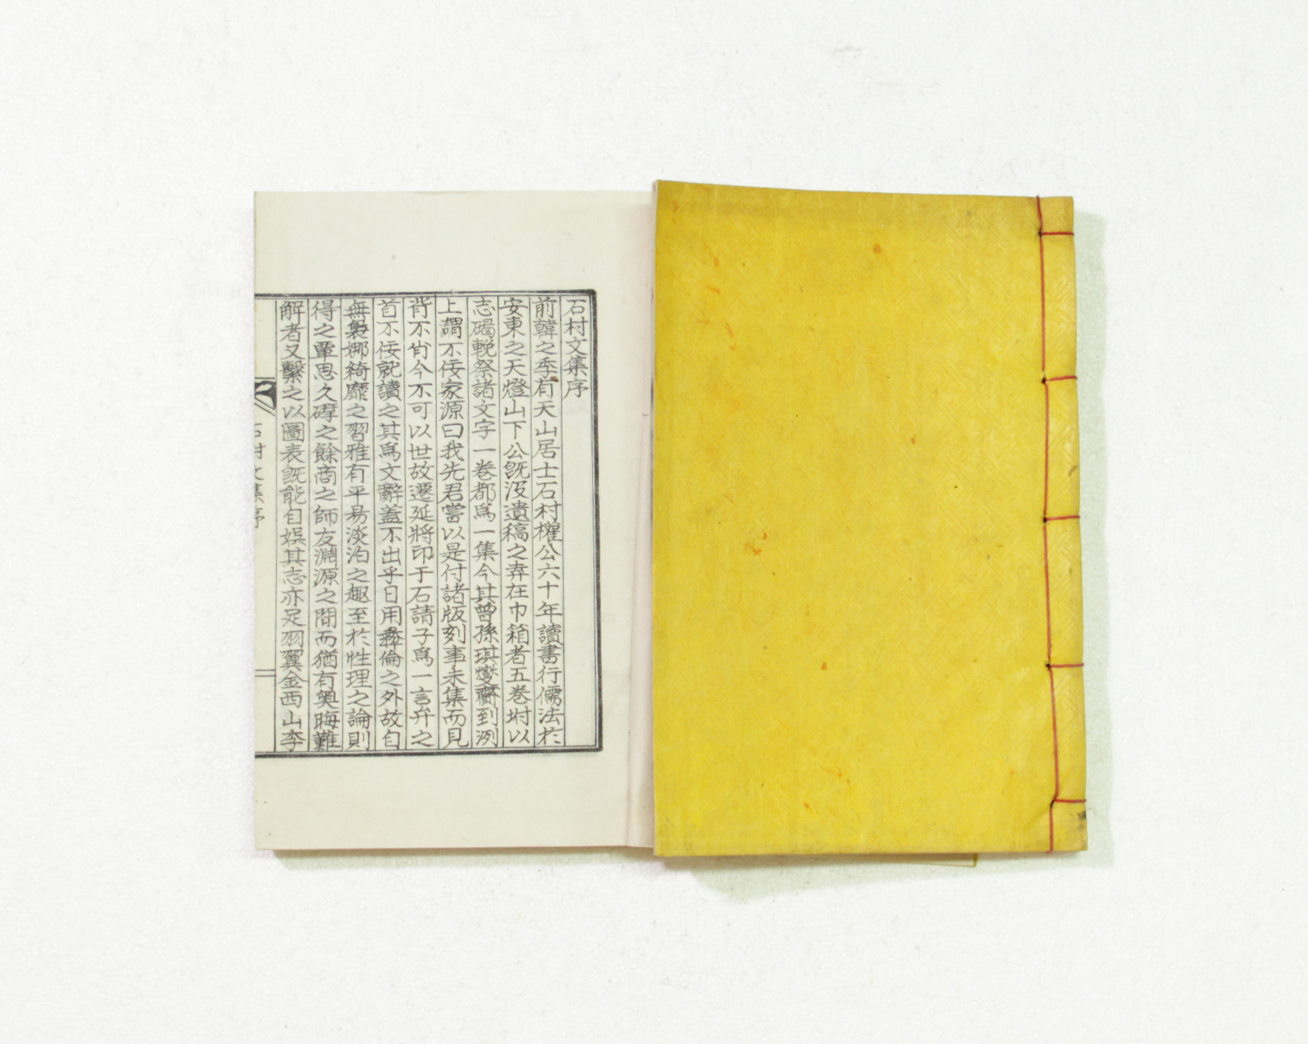 石村文集序
前韓之季有天山居士石村權公六十年讀書行儒法於
安東之天燈山下公旣沒遺稿之弆在巾箱者五卷坿以
志碣輓祭諸文字一卷都爲一集今其曾孫琪燮齎到洌
上謂不佞家源曰我先君嘗以是付諸版刻事未集而見
背不肖今不可以世故遷延將印于石請子爲一言弁之
首不佞就讀之其爲文辭蓋不出乎日用彝倫之外故自
無裊娜綺靡之習雅有平易淡泊之趣至於性理之論則
得之覃思久硏之餘商之師友淵源之間而猶有奧晦難
解者又繫之以圖表旣能自娛其志亦足羽翼金西山李
石村文集序